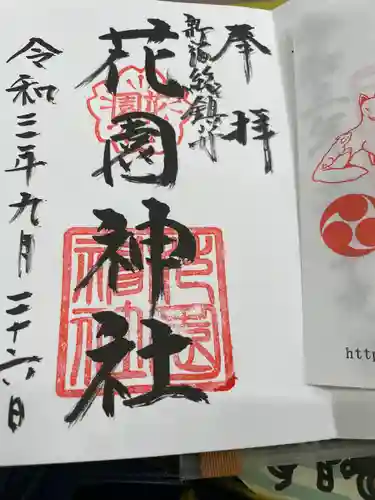 奉拝
新宿総鎮守
花園神社
令和三年九月二十六日
http
今日